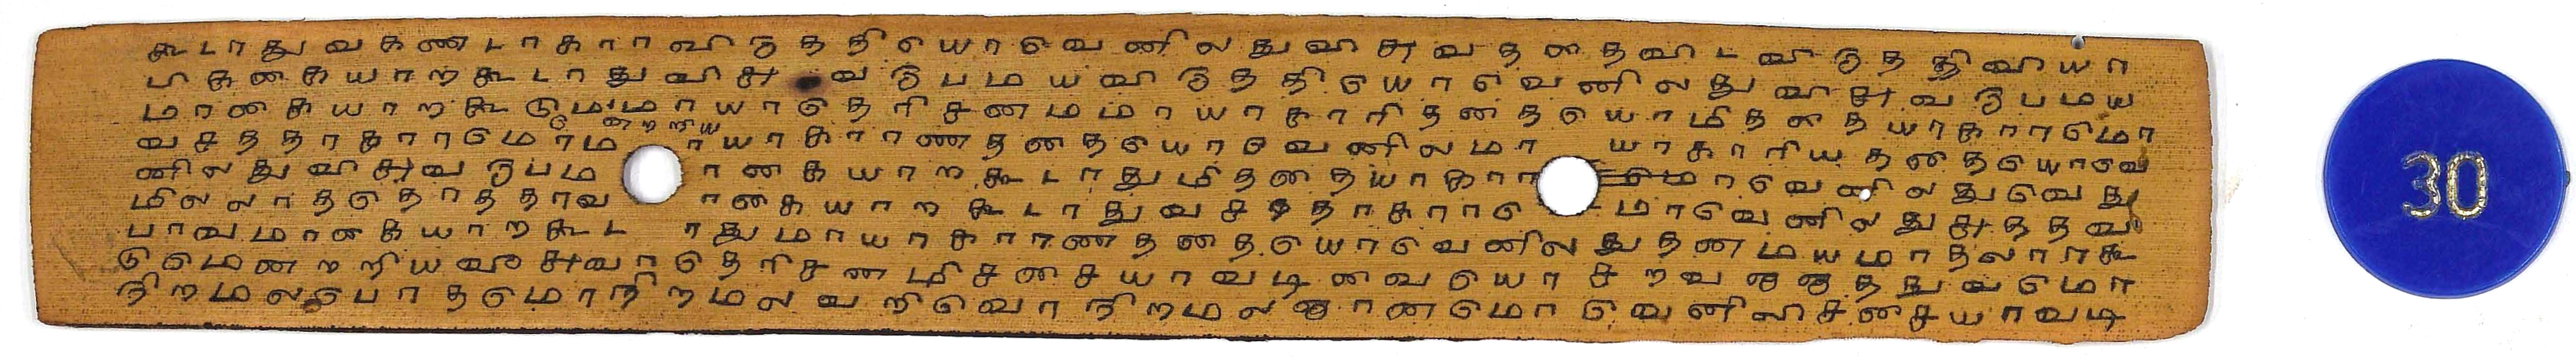 கூடாது வகண்டாகாரவிருத்தியொவெனிலதுவிசுவததைவிடவிருத்திவியா
பிகைகயாறகூடாதுவிசுவருபமயவிருத்தியொவெனிலதுவிசுவருபமய
மானகயாறகூடுமமாயாதெரிசனமமாயாகாரிதனதயொமிததையாகாரமொ
வசத்தாகாரமொமாயாகாரணதனதயொவெனிலமாயாகாரியதனதயொவெ
னிலதுவிசுவருபமானகயாறகூடாதுமிததையாகாரமொவெனிலதுவெது
மிலலாததொத்தாவானகயாறகூடாதுவசத்தாகாரமொவெனிலதுசுத்தவ
பாவமானகயாறகூடாதுமாயாகாரணதனதயொவெனிலதுதணமயமாதலாரகூ
டுமெனறறியவுசுவாதெரிசனமிசசையாவடிவையொசறவஞஞத்துவமொ
நிறமலபொதமொநிறமலவறிவொநிறமலஞானமொவெனிலிசசையாவடி
30